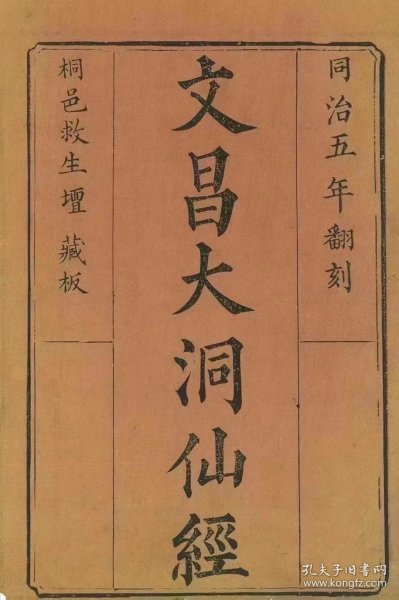 同治五年翻刻
文昌大洞仙經
桐邑救生壇藏板
孔夫子旧书网
www.kongfz.com